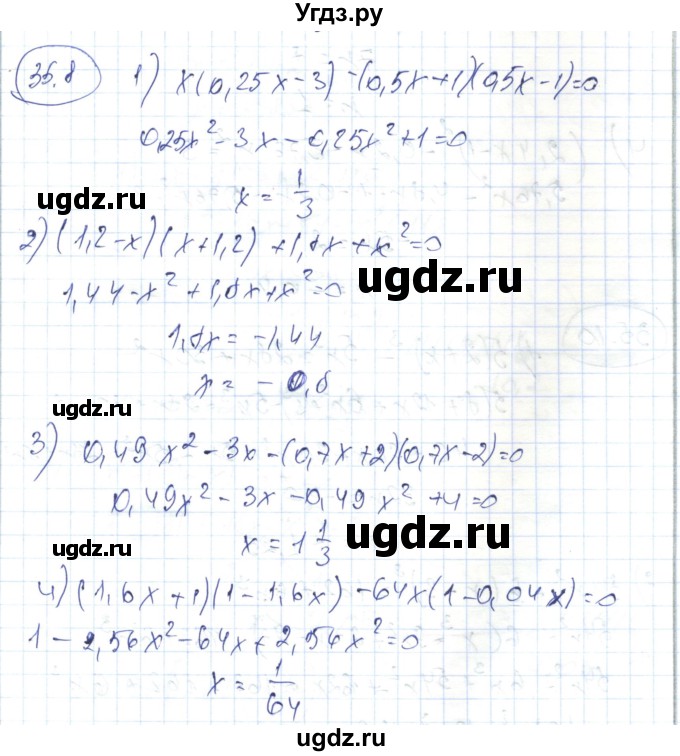 Угдз.ру
35.8 1) x(0,25x-3)-(0,5x+1)(0,5x-1)=0
0,25x²-3x-0,25x²+1=0
x = 1/3
ugdz.ru ugdz.ru
2) (1,2-x)(x+1,2)+1,8x+x²=0
ugdz.ru
1,44-x²+1,8x+x²=0
1,8x=-1,44
ugdz.ru
x = -0,8
3) 0,49x²-3x-(0,7x+2)(0,7x-2)=0
0,49x²-3x-0,49x²+4=0
ugdz.ru ugdz.ru
x = 1 1/3
4) (1,6x+1)(1-1,6x)-64x(1-0,04x)=0
1-2,56x²-64x+2,56x²=0
x = 1/64
ugdz.ru ugdz.ru